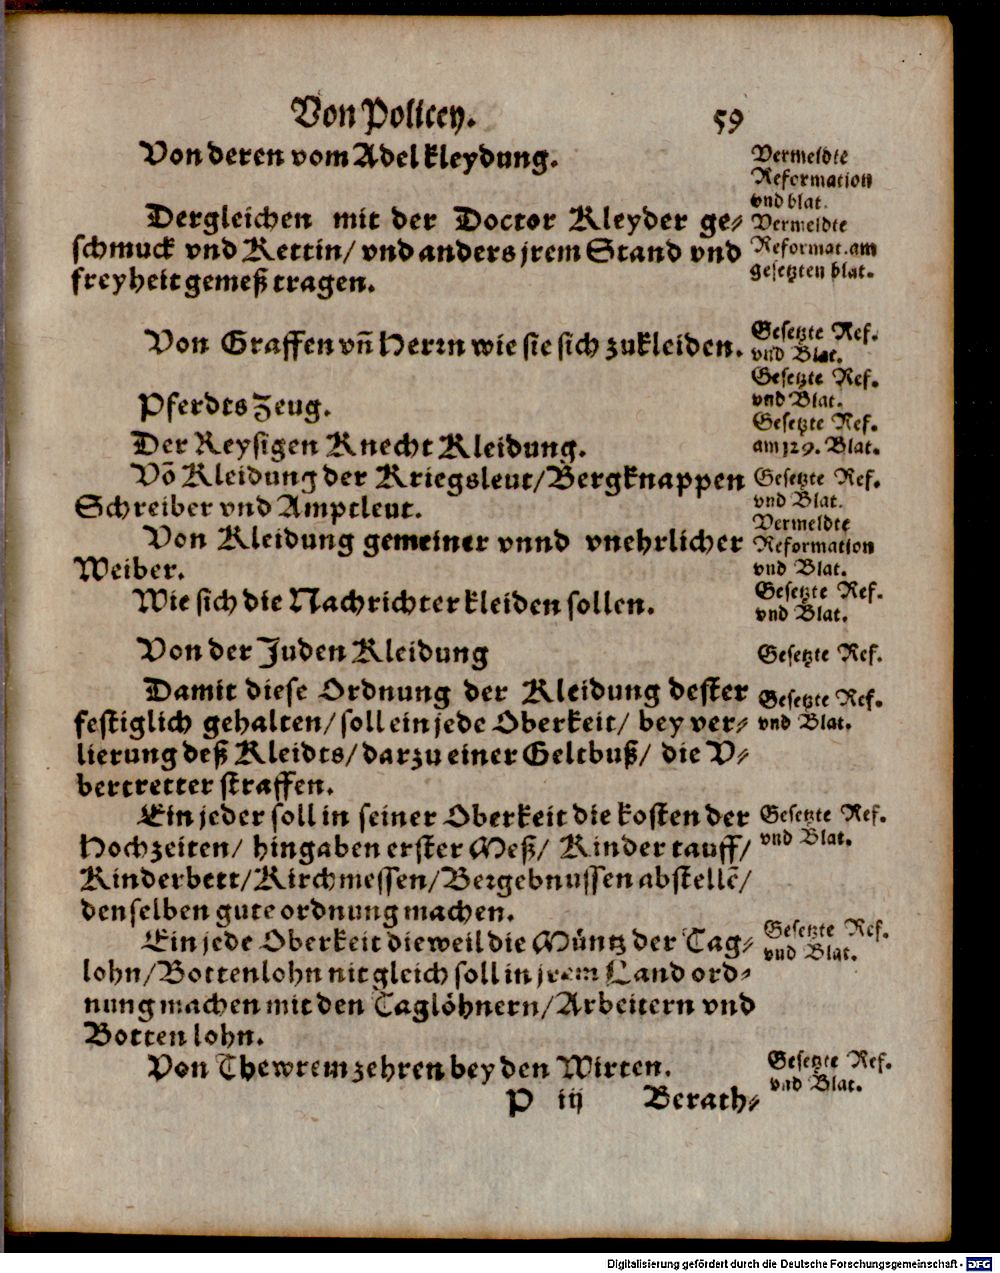 Von Policey. 59
Von deren vom Adel kleydung.
Vermeldte
Reformation
vnd blat.
Dergleichen mit der Doctor Kleyder ge⸗
schmuck vnd Kettin/ vnd anders jrem Stand vnd
freyheit gemeß tragen.
Vermeldte
Reformat. am
gesetzten blat.
Von Graffen vñ Herrn wie sie sich zukleiden.
Gesetzte Ref.
vnd Blat.
Pferdts Zeug.
Gesetzte Ref.
vnd Blat.
Der Reysigen Knecht Kleidung.
Gesetzte Ref.
am 129. Blat.
Võ Kleidung der Kriegsleut/Bergknappen
Schreiber vnd Amptleut.
Gesetzte Ref.
vnd Blat.
Von Kleidung gemeiner vnnd vnehrlicher
Weiber.
Vermeldte
Reformation
vnd Blat.
Wie sich die Nachrichter kleiden sollen.
Gesetzte Ref.
vnd Blat.
Von der Juden Kleidung
Gesetzte Ref.
Damit diese Ordnung der Kleidung dester
festiglich gehalten/ soll ein jede Oberkeit/ bey ver⸗
lierung deß Kleidts/ darzu einer Geltbuß/ die V⸗
bertretter straffen.
Gesetzte Ref.
vnd Blat.
Ein jeder soll in seiner Oberkeit die kosten der
Hochzeiten/ hingaben erster Meß/ Kinder tauff/
Kinderbett/Kirchmessen/Bergebnussen abstellẽ/
denselben gute ordnung machen.
Gesetzte Ref.
vnd Blat.
Ein jede Oberkeit dieweil die Müntz der Tag⸗
lohn/Bottenlohn nit gleich soll in jrem Land ord⸗
nung machen mit den Taglöhnern/Arbeitern vnd
Botten lohn.
Gesetzte Ref.
vnd Blat.
Von Thewrem zehren bey den Wirten.
Gesetzte Ref.
vnd Blat.
P iij Berath⸗
Digitalisierung gefördert durch die Deutsche Forschungsgemeinschaft - DFG